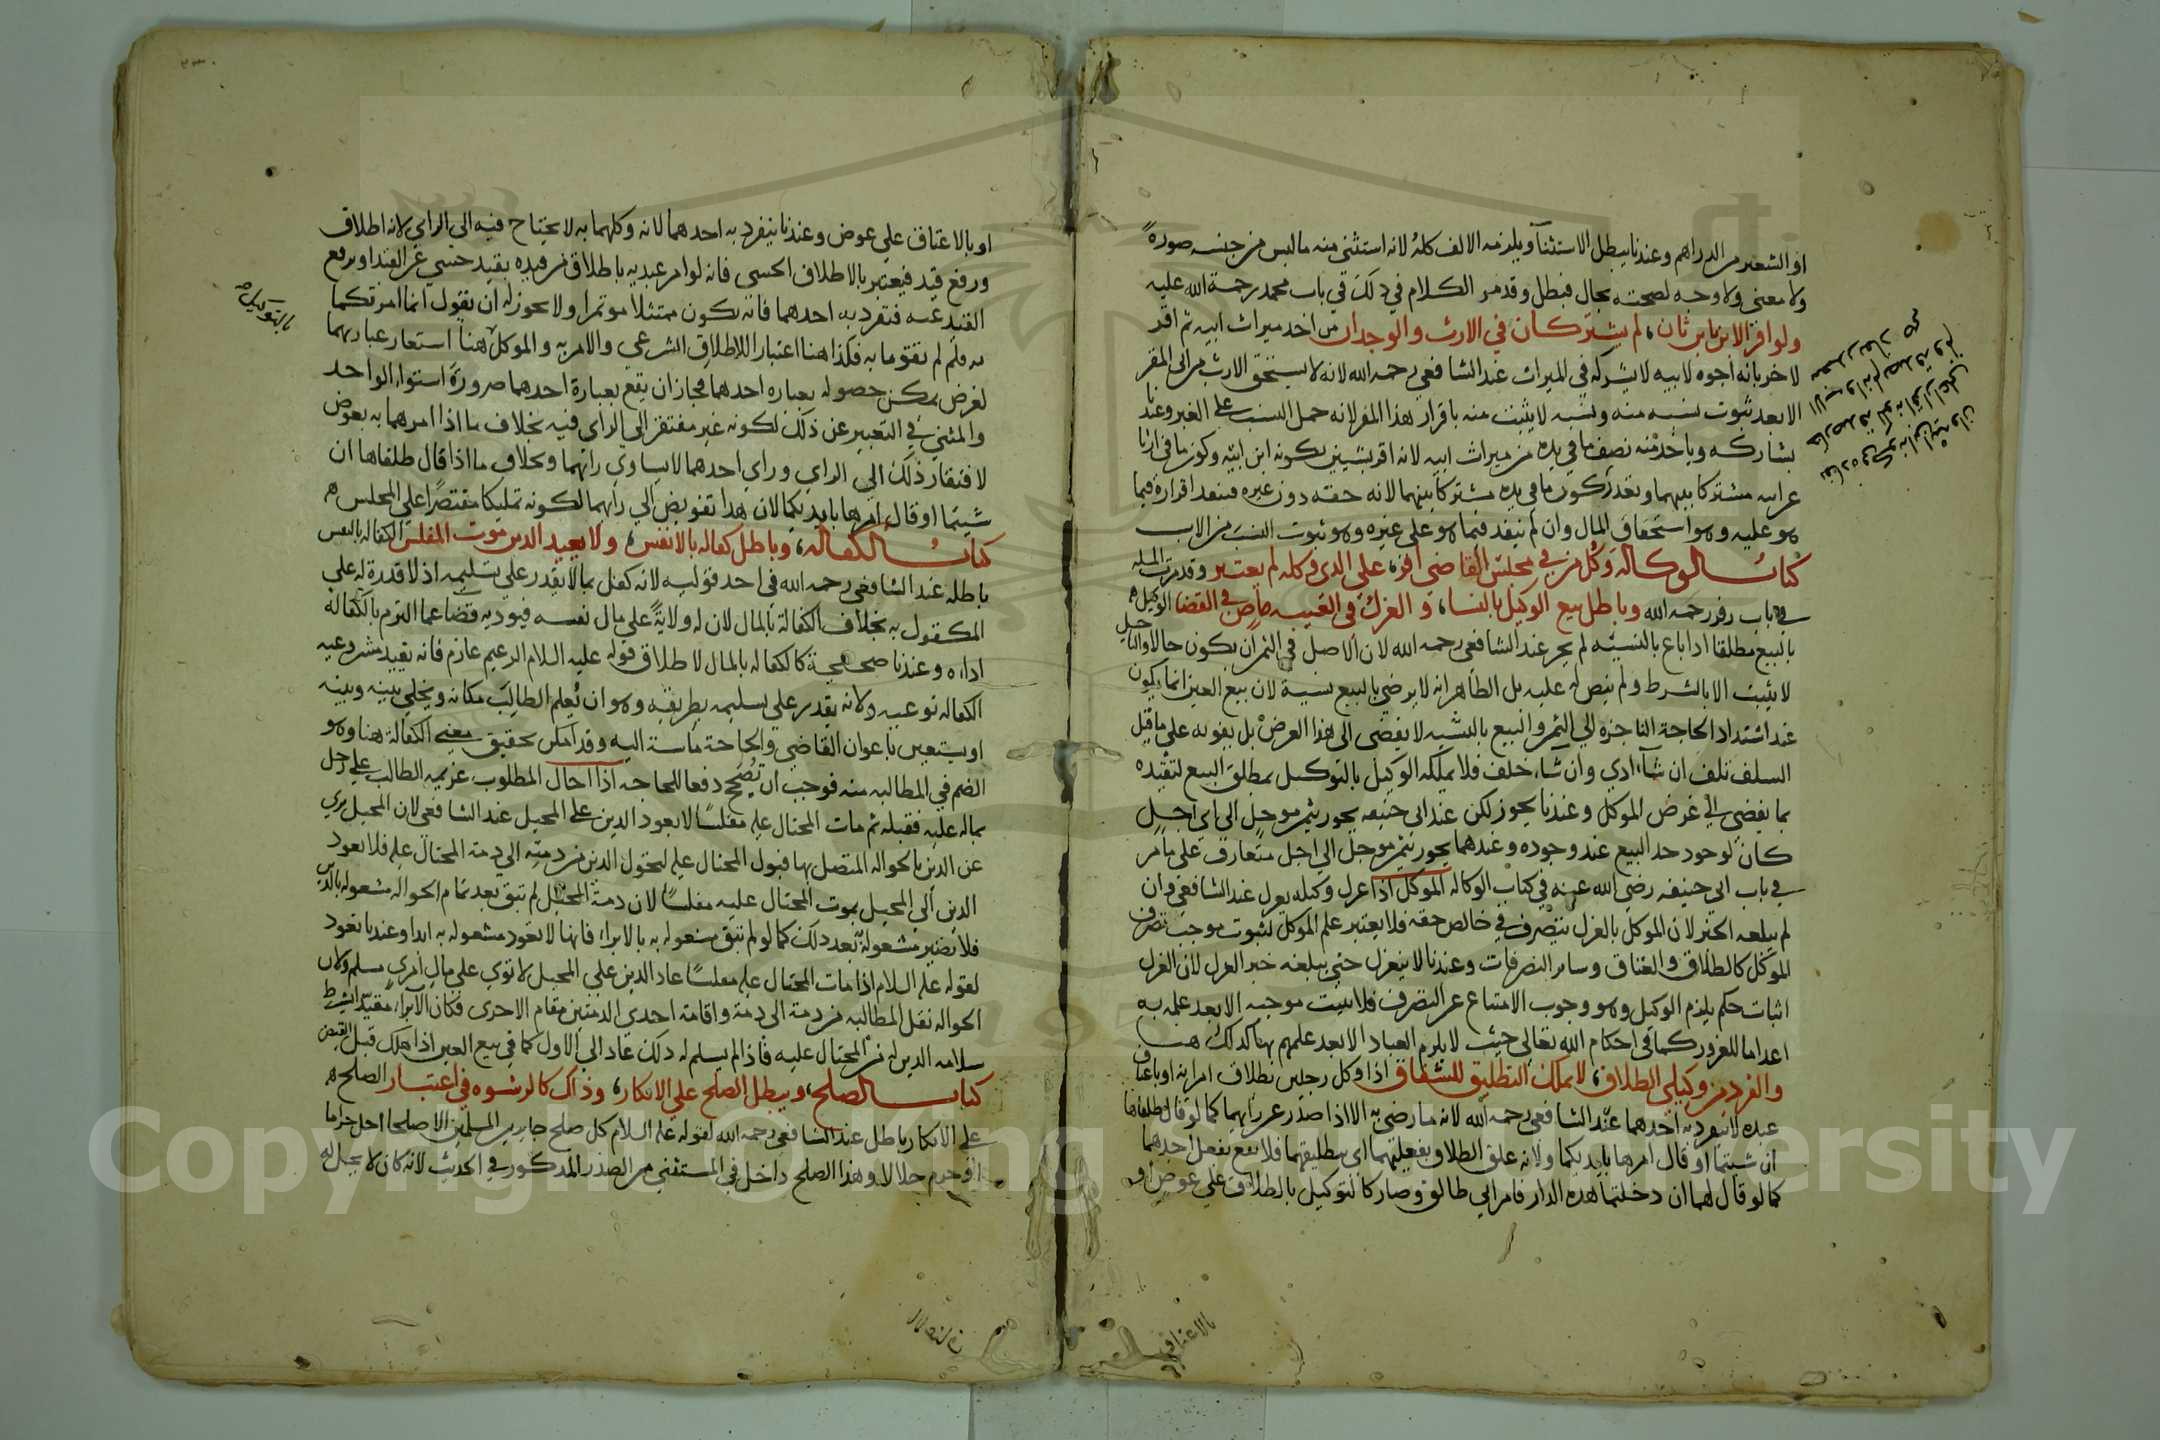 او الشعير من الدراهم وعندنا يبطل الاستثنآ ويلزمه الالف كله لانه استثنى منه ما ليس من جنسه صورةً
ولا معنى ولا وجه لصحته بحال فبطل وقد مر الكلام في ذلك في باب محمد رحمة الله عليه
ولو اقر الابن بابن ثان، لم يشتركان في الارث والوجدان من اخد ميراث ابيه ثم اقر
لاخر بانه اخوه لابيه لا يشركه في الميراث عند الشافعي رحمه الله لانه لا يستحق الارث من ابي المقر
الا بعد ثبوت نسبه منه ونسبه لا يثبت منه باقرار هذا المقر لانه حمل النسب على الغير وعندنا
يشاركه وياخد منه نصف ما في يده من ميراث ابيه لانه اقر بشيئين بكونه ابن ابيه وكون ما في
مشتركا بينهما وبعد كون ما في يده مشتركا بينهما لانه حقه دون غيره فينفد اقراره فيما
هو عليه وهو استحقاق المال وان لم ينفد فيما هو على غيره وهو ثبوت النسب من الاب
كتاب الوكالة وكل من في مجلس القاضي اقر، علي الذي وكله لم يعتبر وقد مرت المسلة
في باب زفر رحمه الله وباطل بيع الوكيل بالنسا، والعزل في الغيبه ماض في القضا الوكيل
بالبيع مطلقا اذا باع بالنسيئه لم يجز عند الشافعي رحمه الله لان الاصل في الثمن ان يكون حالا والتاجيل
لا يثبت الا بالشرط ولم ينص له عليه بل الظاهر انه لا يرضي بالبيع نسية لان بيع العين انما يكون
عند اشتداد الحاجة الناجزه الي الثمن والبيع بالنسيه لا يفضي الى هذا الغرض بل يفوته على ما قيل
السلف تلف ان شآء ادي وان شاء خلف فلا يملكه الوكيل بالتوكيل بمطلق البيع لتقيده
بما يفضي الي غرض الموكل وعندنا يجوز لكن عند ابي حنيفه يجوز بثمن موجل الي اي اجل
كان لوجود حد البيع عند وجوده وعندهما يجوز بثمن موجل الي اجل متعارف على ما مر
في باب ابى حنيفه رضي الله عنه في كتاب الوكالة الموكل اذا عزل وكيله يعزل عند الشافعي وان
لم يبلغه الخبر لان الموكل بالعزل يتصرف في خالص حقه فلا يعتبر علم الموكل لثبوت موجب تصرف
الموكل كالطلاق والعتاق وساير التصرفات وعندنا لا ينعزل حتي يبلغه خبر العزل لان العزل
اثبات حكم يلزم الوكيل وهو وجوب الامتناع عن التصرف فلا يثبت موجبه الا بعد علمه به
اعداما للغرور كما في احكام الله تعالي حيث لا يلزم العباد الا بعد علمهم بها كذلك هنا
والفرد من وكيلي الطلاق، لا يملك التطليق للشقاق اذا وكل رجلين بطلاق امراته او باعتاق
عبده لا ينفرد به احدهما عند الشافعي رحمه الله لانه ما رضي به الا اذا صدر عن رايهما كما لو قال طلقاها
ان شيتما او قال امرها بايديكما ولانه علق الطلاق بفعليهما اي بتطليقهما فلا يقع بفعل احدهما
كما لو قال لهما ان دخلتما هذه الدار فامراتي طالق وصار كالتوكيل بالطلاق علي عوض او
بالاعتاق
او بالاعتاق علي عوض وعندنا ينفرد به احدهما لانه وكلهما به لا يحتاج فيه الى الراي لانه اطلاق
ورفع قيد فيعتبر بالاطلاق الحسى فانه لو امر عبديه باطلاق من قيده بقيد حسي عن القيد او برفع
القيد عنه فتفرد به احدهما فانه يكون ممتثلا موتمرا ولا يجوز له ان يقول انما امرتكما
به فلم لم تقوما به فكذا هنا اعتبار اللاطلاق الشرعي والامر به والموكل هنا استعار عبارتهما
بالتوكيل
لغرض يمكن حصوله بعباره احدهما فجاز ان يقع بعبارة احدهما ضرورة استواء الواحد
والمثني في التعبير عن ذلك لكونه غير مفتقر الي الراي فيه بخلاف ما اذا امرهما به بعوض
لافتقار ذلك الى الراي وراي احدهما لا يساوي رايهما وبخلاف ما اذا قال طلقاها ان
شيتما او قال امرها بايديكما لان هذا تفويض الي رايهما لكونه تمليكا مقتصرًا علي المجلس
كتاب الكفاله، وباطل كفاله بالانفس، ولا يعيد الدين موت المفلس الكفاله بالنفس
باطله عند الشافعي رحمه الله في احد قوليه لانه كفل بما لا يقدر علي تسليمه اذ لا قدرة له علي
المكفول به بخلاف الكفالة بالمال لان له ولايةً علي مال نفسه فيوديه قضا عما التزم بالكفالة
اداه وعندنا صحيحة كالكفاله بالمال لاطلاق قوله عليه السلام الزعيم غارم فانه يفيد مشروعيه
الكفاله نوعيه ولانه يقدر على تسليمه بطريقه وهو ان يُعلم الطالب مكانه ويخلي بينه وبينه
او يستعين باعوان القاضي والحاجة ماسة اليه وقد امكن تحقيق معني الكفالة هنا وهو
الضم في المطالبه منه فوجب ان تُصح دفعا للحاجه اذا احال المطلوب غريمه الطالب علي رجل
بماله عليه فقبله ثم مات المحتال عليه مفلسًا لا يعود الدين على المحيل عند الشافعي لان المحيل بري
عن الدين بالحواله المتصل بها قبول المحتال عليه لتحول الدين من دمته الي دمة المحتال عليه فلا يعود
الدين الي المحيل بموت المحتال عليه مفلسًا لان دمة المحيل لم تبق بعد تمام الحواله مشغوله بالدين
فلا تصير مشغولة بعد ذلك كما لو لم تبق مشغوله به بالابراء فانها لا تعود مشغوله به ابدا وعندنا تعود
لقوله عليه السلام اذا مات المحتال عليه مفلسًا عاد الدين علي المحيل لا توي علي مال امري مسلم ولان
الحواله نقل المطالبه من دمة الى دمة واقامة احدي الدمتين مقام الاخرى فكان الابراء مقيدا بشرط
سلامه الدين له من المحتال عليه فاذا لم يسلم له ذلك عاد الي الاول كما في بيع العين اذا هلك قبل القبض
كتاب الصلح، ويبطل الصلح علي الانكار، وذاك كالرشوه في اعتبار الصلح
على الانكار باطل عند الشافعي رحمه الله لقوله عليه السلام كل صلح جايز بين المسلمين الا صلحا احل حراما
او حرم حلالا وهذا الصلح داخل في المستثني من الصدر المذكور في الحديث لانه كان لا يحل له
Copyright © King Saud University